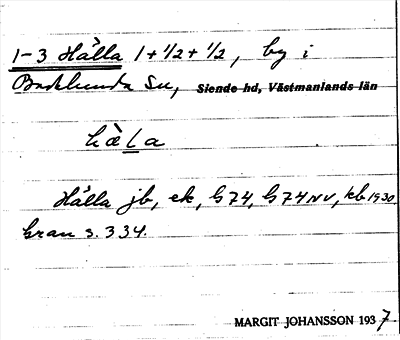 1-3 Hälla 1+1/2+1/2, by i
Badelunda Sn, Siende hd, Västmanlands län
hὲLa
Hälla jb, ek, G 74, G 74 NV, kb 1930
Gran s. 334.
MARGIT JOHANSSON 1937